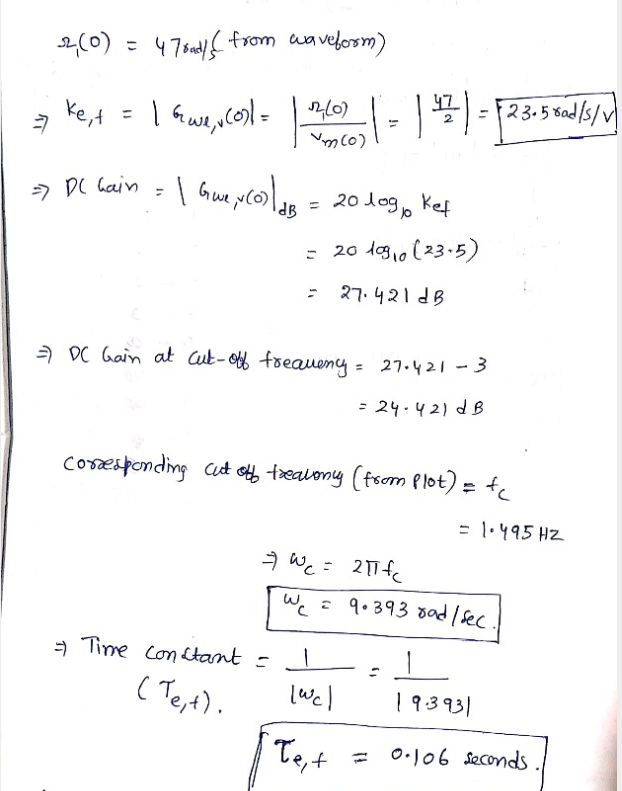 Ω₁(0) = 47 rad/s (from waveform)
⇒ Ke,f = |Gwe,v(0)| = |Ω₁(0) / Vm(0)| = |47/2| = 23.5 rad/s/V
⇒ DC Gain = |Gwe,v(0)|dB = 20 log₁₀ Kef
= 20 log₁₀ (23.5)
= 27.421 dB
⇒ DC Gain at cut-off frequency = 27.421 - 3
= 24.421 dB
Corresponding cut off frequency (from Plot) = fc
= 1.495 HZ
⇒ Wc = 2πfc
Wc = 9.393 rad/sec.
⇒ Time constant = 1/|Wc| = 1/|9.393|
(Te,f).
τe,f = 0.106 seconds.